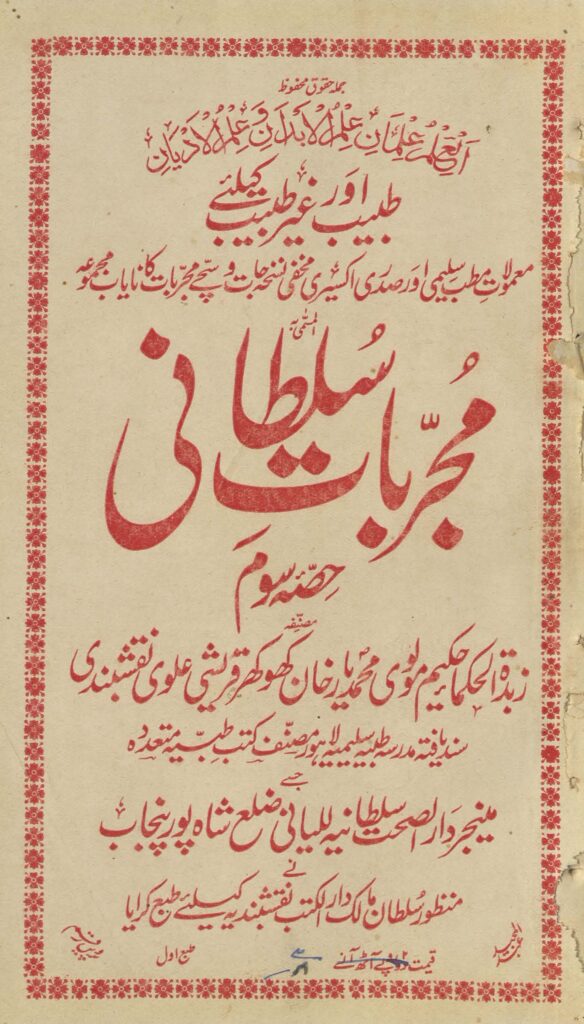 جملہ حقوق محفوظ
اَلعِلمُ عِلمَانِ عِلمُ الاَبدَانِ وَعِلمُ الاَدیَانِ
طبیب اور غیر طبیب کیلئے
معمولات مطب سلیمی اور صدری اکسیری مخفی نسخہ جات و سچے مجربات کا نایاب مجموعہ
المسمّٰی بہ
مُجرّبات سُلطانی
حِصّہ سومَ
مصنّفہ
زبدۃ الحکماء حکیم مولوی محمد یار خان کھوکھر قریشی علوی نقشبندی
سند یافتہ مدرسہ طبیہ سلیمیہ لاہور مصنّف کتب طبیّہ متعددہ
جسے
مینجر دار الصحت سلطانیہ للیانی ضلع شاہ پور پنجاب
نے
منظور سُلطان مالک دار الکتب نقشبندیہ کیلئے طبع کرایا
طبع اول
قیمت دو روپے آٹھ آنے